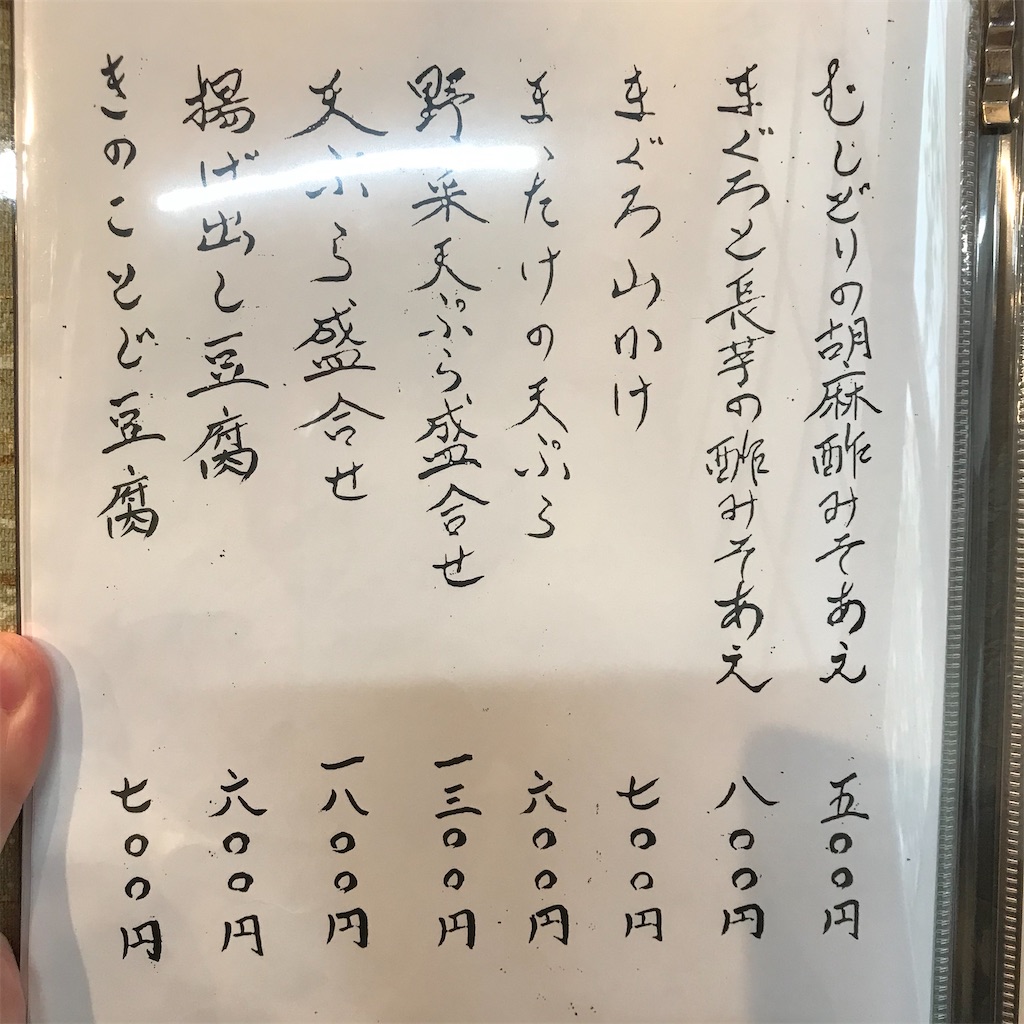 むしどりの胡麻酢みそあえ 五〇〇円
まぐろと長芋の酢みそあえ 八〇〇円
まぐろ山かけ 七〇〇円
まいたけの天ぷら 六〇〇円
野菜天ぷら盛合せ 一三〇〇円
天ぷら盛合せ 一八〇〇円
揚げ出し豆腐 六〇〇円
きのことじ豆腐 七〇〇円